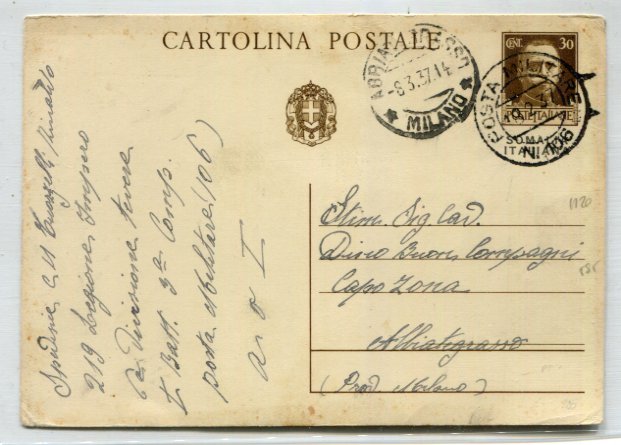 CARTOLINA POSTALE
CENT. 30
POSTE ITALIANE
SOMALIA
ITALIANA
ABBIATEGRASSO
-8.3.37.14
* MILANO *
POSTA MILITARE
N. 106
Stim. Sig Cav.
Dino Buon Compagni
Capo Zona
Abbiategrasso
(Prov. Milano)
Spedisce C. N. Rinaldo
219 Legione Impero
6a Divisione Tevere
I Batt. 3a Comp.
posta Militare (106)
A O I
1120